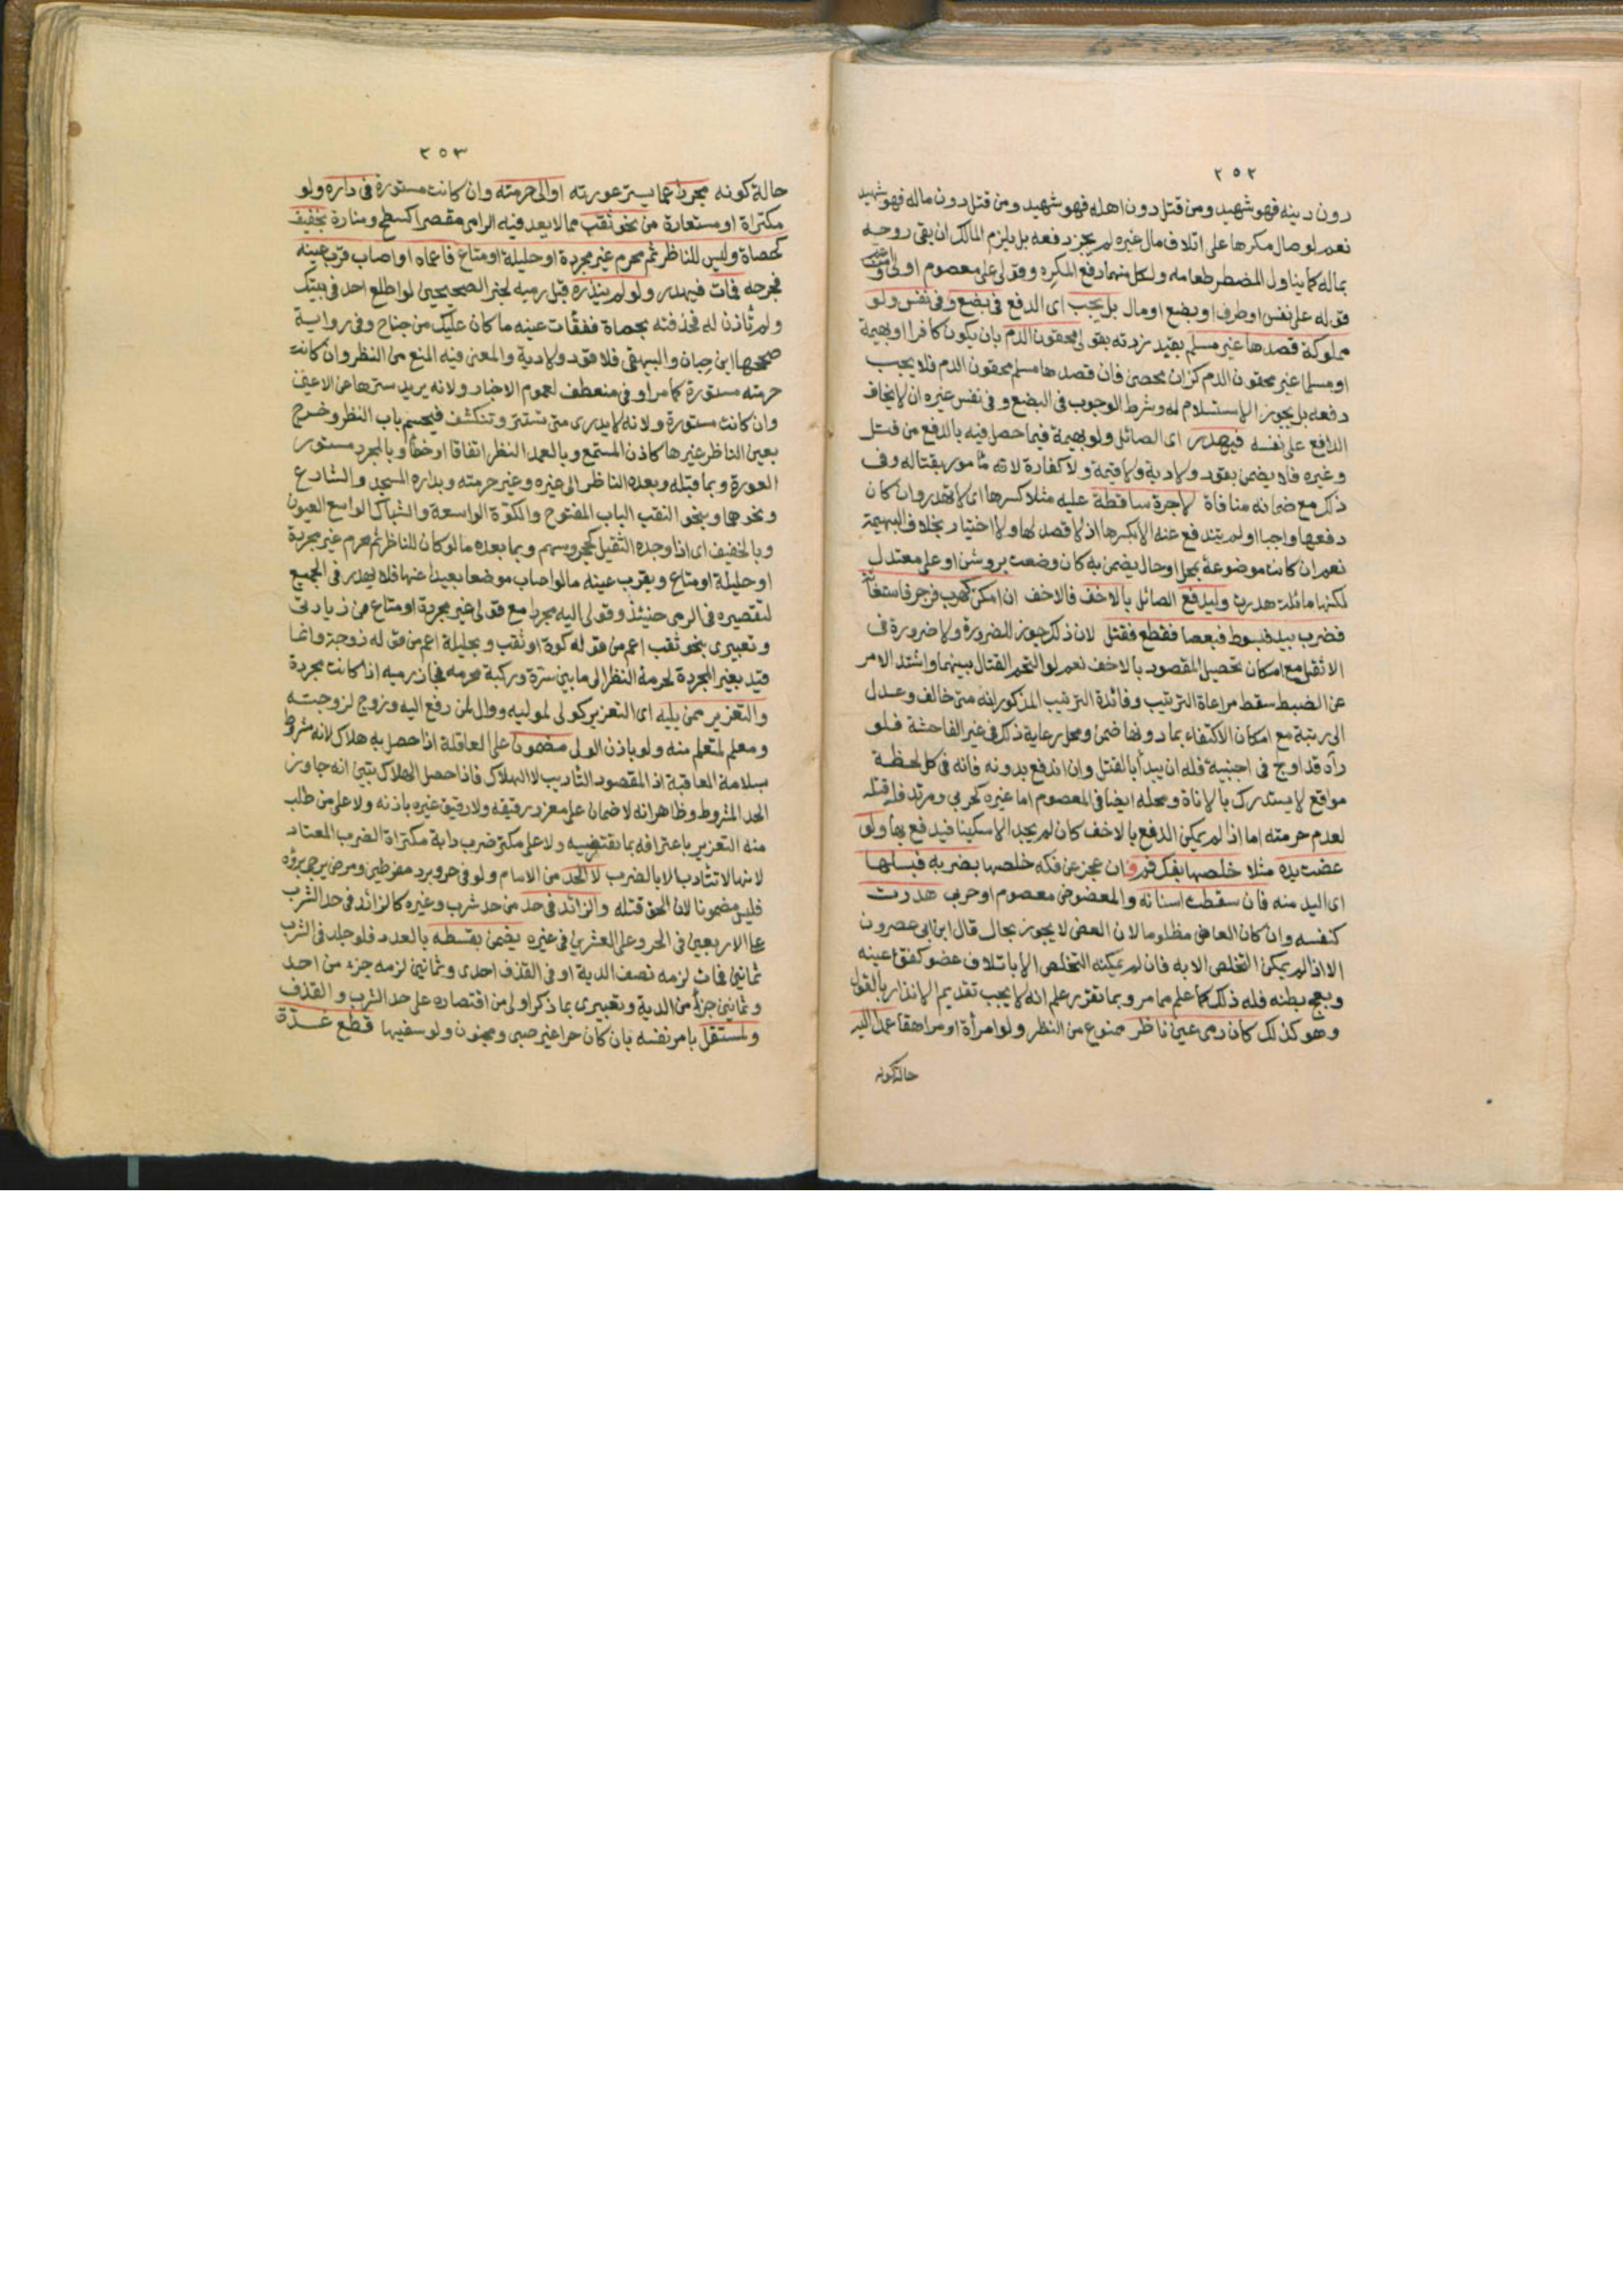 ٢٥٢
دون دينه فهو شهيد ومن قتل دون اهله فهو شهيد ومن قتل دون ماله فهو شهيد
نعم لو صال مكرها على اتلاف مال غيره لم يجز دفعه بل يلزم المالك ان يقى روحه
بماله كما يناول المضطر طعامه ولكل منهما دفع المكره وقولى على معصوم اولى واعم من
قوله على نفس او طرف او بضع او مال بل يجب اى الدفع فى بضع وفى نفس ولو
مملوكة قصدها غير مسلم بقيد زدته بقولى محقون الدم بان يكون كافرا او بهيمة
او مسلما غير محقون الدم كزان محصن فان قصدها مسلم محقون الدم فلا يجب
دفعه بل يجوز الاستسلام له وشرط الوجوب فى البضع وفى نفس غيره ان لا يخاف
الدافع على نفسه فيهدر اى الصائل ولو بهيمة فيما حصل فيه بالدفع من قتل
وغيره فلا يضمن بقود ولا دية ولا قيمة ولا كفارة لانه مأمور بقتاله وفى
ذلك مع ضمانه منافاة لا جرة ساقطة عليه مثلا كسرها اى لا تهدر وان كان
دفعها واجبا او لم تندفع عنه الا بكسرها اذ لا قصد لها ولا اختيار بخلاف البهيمة
نعم ان كانت موضوعة بمحل او حال يضمن به كان وضعت بروشن او على معتدل
لكنها مائلة هدرت وليدفع الصائل بالاخف فالاخف ان امكن كهرب فزجر فاستغاثة
فضرب بيد فبسوط فبعصا فقطع فقتل لان ذلك جوز للضرورة ولا ضرورة فى
الاثقل مع امكان تحصيل المقصود بالاخف نعم لو التحم القتال بينهما واشتد الامر
عن الضبط سقط مراعاة الترتيب وفائدة الترتيب المذكور انه متى خالف وعدل
الى رتبة مع امكان الاكتفاء بما دونها ضمن ومحل رعاية ذلك فى غير الفاحشة فلو
رآه قد اولج فى اجنبية فله ان يبدأ بالقتل وان اندفع بدونه فانه فى كل لحظة
مواقع لا يستدرك بالاناة ومحله ايضا فى المعصوم اما غيره كحربى ومرتد فله قتله
لعدم حرمته اما اذا لم يمكن الدفع بالاخف كان لم يجد الا سكينا فيدفع بها ولو
عضت يده مثلا خلصها بفك فم فان عجز عن فكه خلصها بضربه فبسلها
اى اليد منه فان سقطت اسنانه والمعضوض معصوم او حربى هدرت
كنفسه وان كان العاض مظلوما لان العض لا يجوز بحال قال ابن ابى عصرون
الا اذا لم يمكن التخلص الا به فان لم يمكنه التخلص الا باتلاف عضو كفقء عينه
وبعج بطنه فله ذلك كما علم مما مر وبما تقرر علم انه لا يجب تقديم الانذار بالقول
وهو كذلك كان رمى عين ناظر ممنوع من النظر ولو امرأة او مراهقا عمدا اليه
حالة كونه
٢٥٣
حالة كونه مجردا عما يستر عورته او الى حرمته وان كانت مستورة فى داره ولو
مكتراة او مستعارة من نحو ثقب مما لا يعد فيه الرامى مقصرا كسطح ومنارة بخفيف
كحصاة وليس للناظر ثم محرم غير مجردة او حليلة او متاع فاعماه او اصاب قرب عينه
فجرحه فمات فيهدر ولو لم ينذره قبل رميه لخبر الصحيحين لو اطلع احد فى بيتك
ولم تأذن له فخذفته بحصاة ففقأت عينه ما كان عليك من جناح وفى رواية
صححها ابن حبان والبيهقى فلا قود ولا دية والمعنى فيه المنع من النظر وان كانت
حرمته مستورة كما مر او فى منعطف لعموم الاخبار ولانه يريد سترها عن الاعين
وان كانت مستورة ولانه لا يدرى متى تستتر وتنكشف فيحسم باب النظر وخرج
بعين الناظر غيرها كاذن المستمع وبالعمد النظر اتفاقا او خطأ وبالمجرد مستور
العورة وبما قبله وبعده الناظر الى غيره وغير حرمته وبداره المسجد والشارع
ونحوهما وبنحو الثقب الباب المفتوح والكوة الواسعة والشباك الواسع العيون
وبالخفيف اى اذا وجده الثقيل كحجر وسهم وبما بعده ما لو كان للناظر ثم محرم غير مجردة
او حليلة او متاع وبقرب عينه ما لو اصاب موضعا بعيدا عنها فلا يهدر فى الجميع
لتقصيره فى الرمى حينئذ وقولى اليه مجردا مع قولى غير مجردة او متاع من زيادتى
وتعبيرى بنحو ثقب اعم من قوله كوة او ثقب وبحليلة اعم من قوله زوجة وانما
قيد بغير المجردة لحرمة النظر الى ما بين سترة وركبة محرمه فجاز رميه اذا كانت مجردة
والتعزير ممن يليه اى التعزير كولى لموليه ووال لمن رفع اليه وزوج لزوجته
ومعلم لمتعلم منه ولو باذن الولى مضمون على العاقلة اذا حصل به هلاك لانه مشروط
بسلامة العاقبة اذ المقصود التأديب لا الهلاك فاذا حصل الهلاك تبين انه جاوز
الحد المشروط وظاهر انه لا ضمان على معزر رقيقه ولا رقيق غيره باذنه ولا على من طلب
منه التعزير باعترافه بما يقتضيه ولا على مكتر ضرب دابة مكتراة الضرب المعتاد
لانها لا تتأدب الا بالضرب لا الحد من الامام ولو فى حر وبرد مفرطين ومرض يرجى برؤه
فليس مضمونا لان الحق قتله والزائد فى حد من حد شرب وغيره كالزائد فى حد الشرب
على الاربعين فى الحر وعلى العشرين فى غيره يضمن بقسطه بالعدد فلو جلد فى الشرب
ثمانين فمات لزمه نصف الدية او فى القذف احدى وثمانين لزمه جزء من احد
وثمانين جزأ من الدية وتعبيرى بما ذكر اولى من اقتصاره على حد الشرب والقذف
ولمستقل بامر نفسه بان كان حرا غير صبى ومجنون ولو سفيها قطع غدة